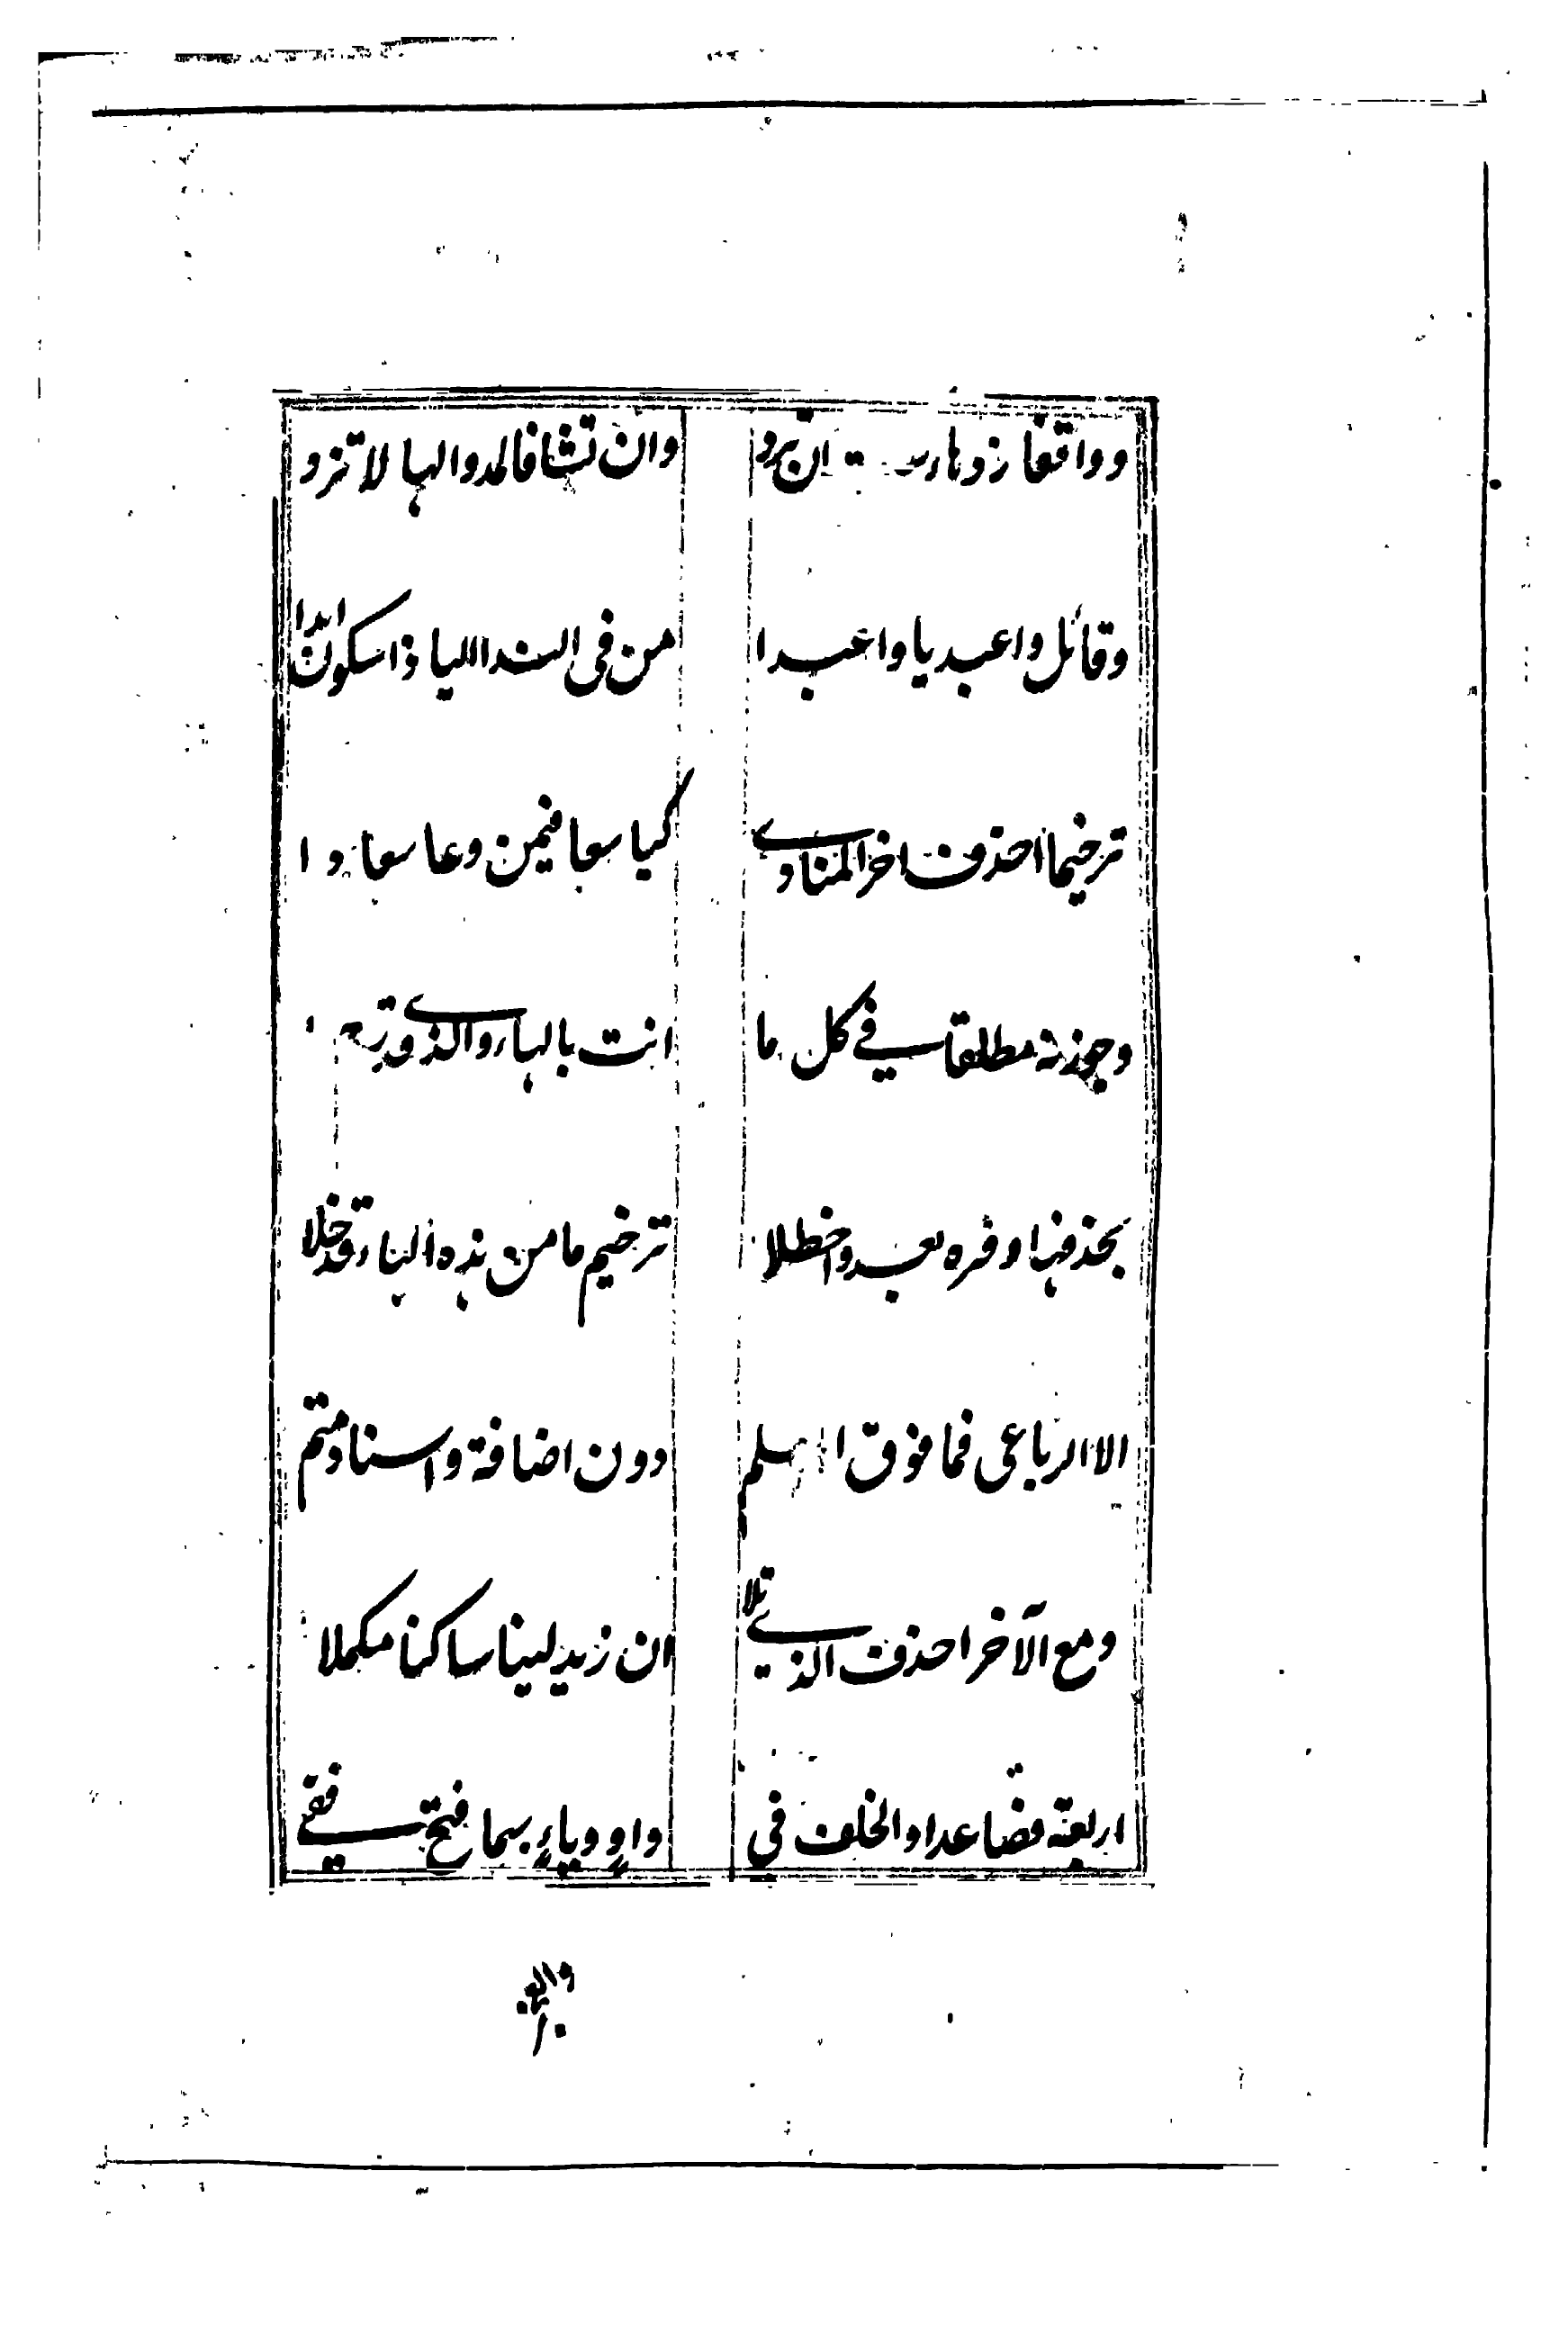 وواقفا زد هاء سكت ان ترد وان تشا فالمد والها لا تزد
وقائل واعبديا واعبدا من فى الندا اليا ذا سكون ابدا
ترخيما احذف اخر المنادى كيا سعا فيمن دعا سعادا
وجوزنه مطلقا فى كل ما انث بالهاء والذى قد رخما
بحذفها وفره بعد واحظلا ترخيم ما من هذه الهاء قد خلا
الا الرباعى فما فوق العلم دون اضافة واسناد متم
ومع الآخر احذف الذى تلا ان زيد لينا ساكنا مكملا
اربعة فصاعدا والخلف فى واو وياء بهما فتح قفى